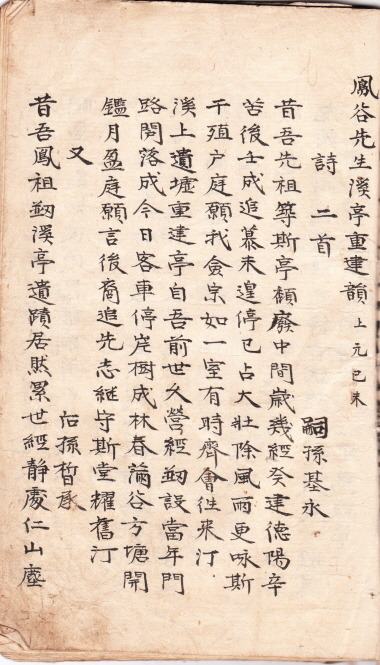 鳳谷先生溪亭重建韻 上元己未
詩二首
嗣孫基永
昔吾先祖等斯亭頹廢中間歲幾經癸建德陽辛
苦後壬成追慕未遑停已占大壯除風雨更咏斯
干殖户庭願我僉宗如一室有時齊會往來汀
溪上遺墟重建亭自吾前世久營經刱設當年門
路闢落成今日客車停岸樹成林春滿谷方塘開
鑑月盈庭願言後裔追先志継守斯堂耀舊汀
又
孫晳承
昔吾鳳祖刱溪亭遺蹟居然累世經靜處仁山塵